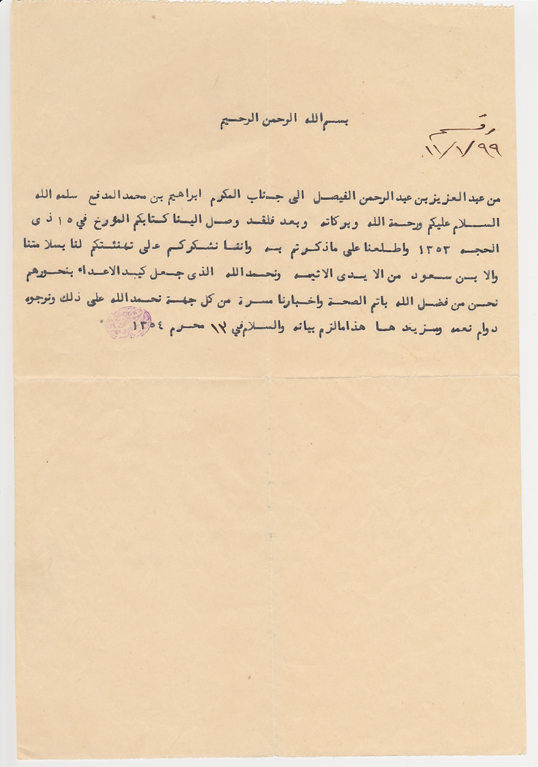 بسم الله الرحمن الرحيم
رقم
١١/١/٩٩
من عبد العزيز بن عبد الرحمن الفيصل الى جناب المكرم ابراهيم بن محمد المدفع سلمه الله
السلام عليكم ورحمة الله وبركاته وبعد فلقد وصل الينا كتابكم المؤرخ في ١٥ ذى
الحجه ١٣٥٣ واطلعنا على ماذكرتم به واننا نشكركم على تهنئتكم لنا بسلامتنا
والابن سعود من الايدى الاثيمه ونحمد الله الذى جعل كيد الاعداء بنحورهم
نحن من فضل الله باتم الصحة واخبارنا مسرة من كل جهة نحمد الله على ذلك ونرجوه
دوام نعمه ومزيدها هذا مالزم بيانه والسلام في ١٣ محرم ١٣٥٤